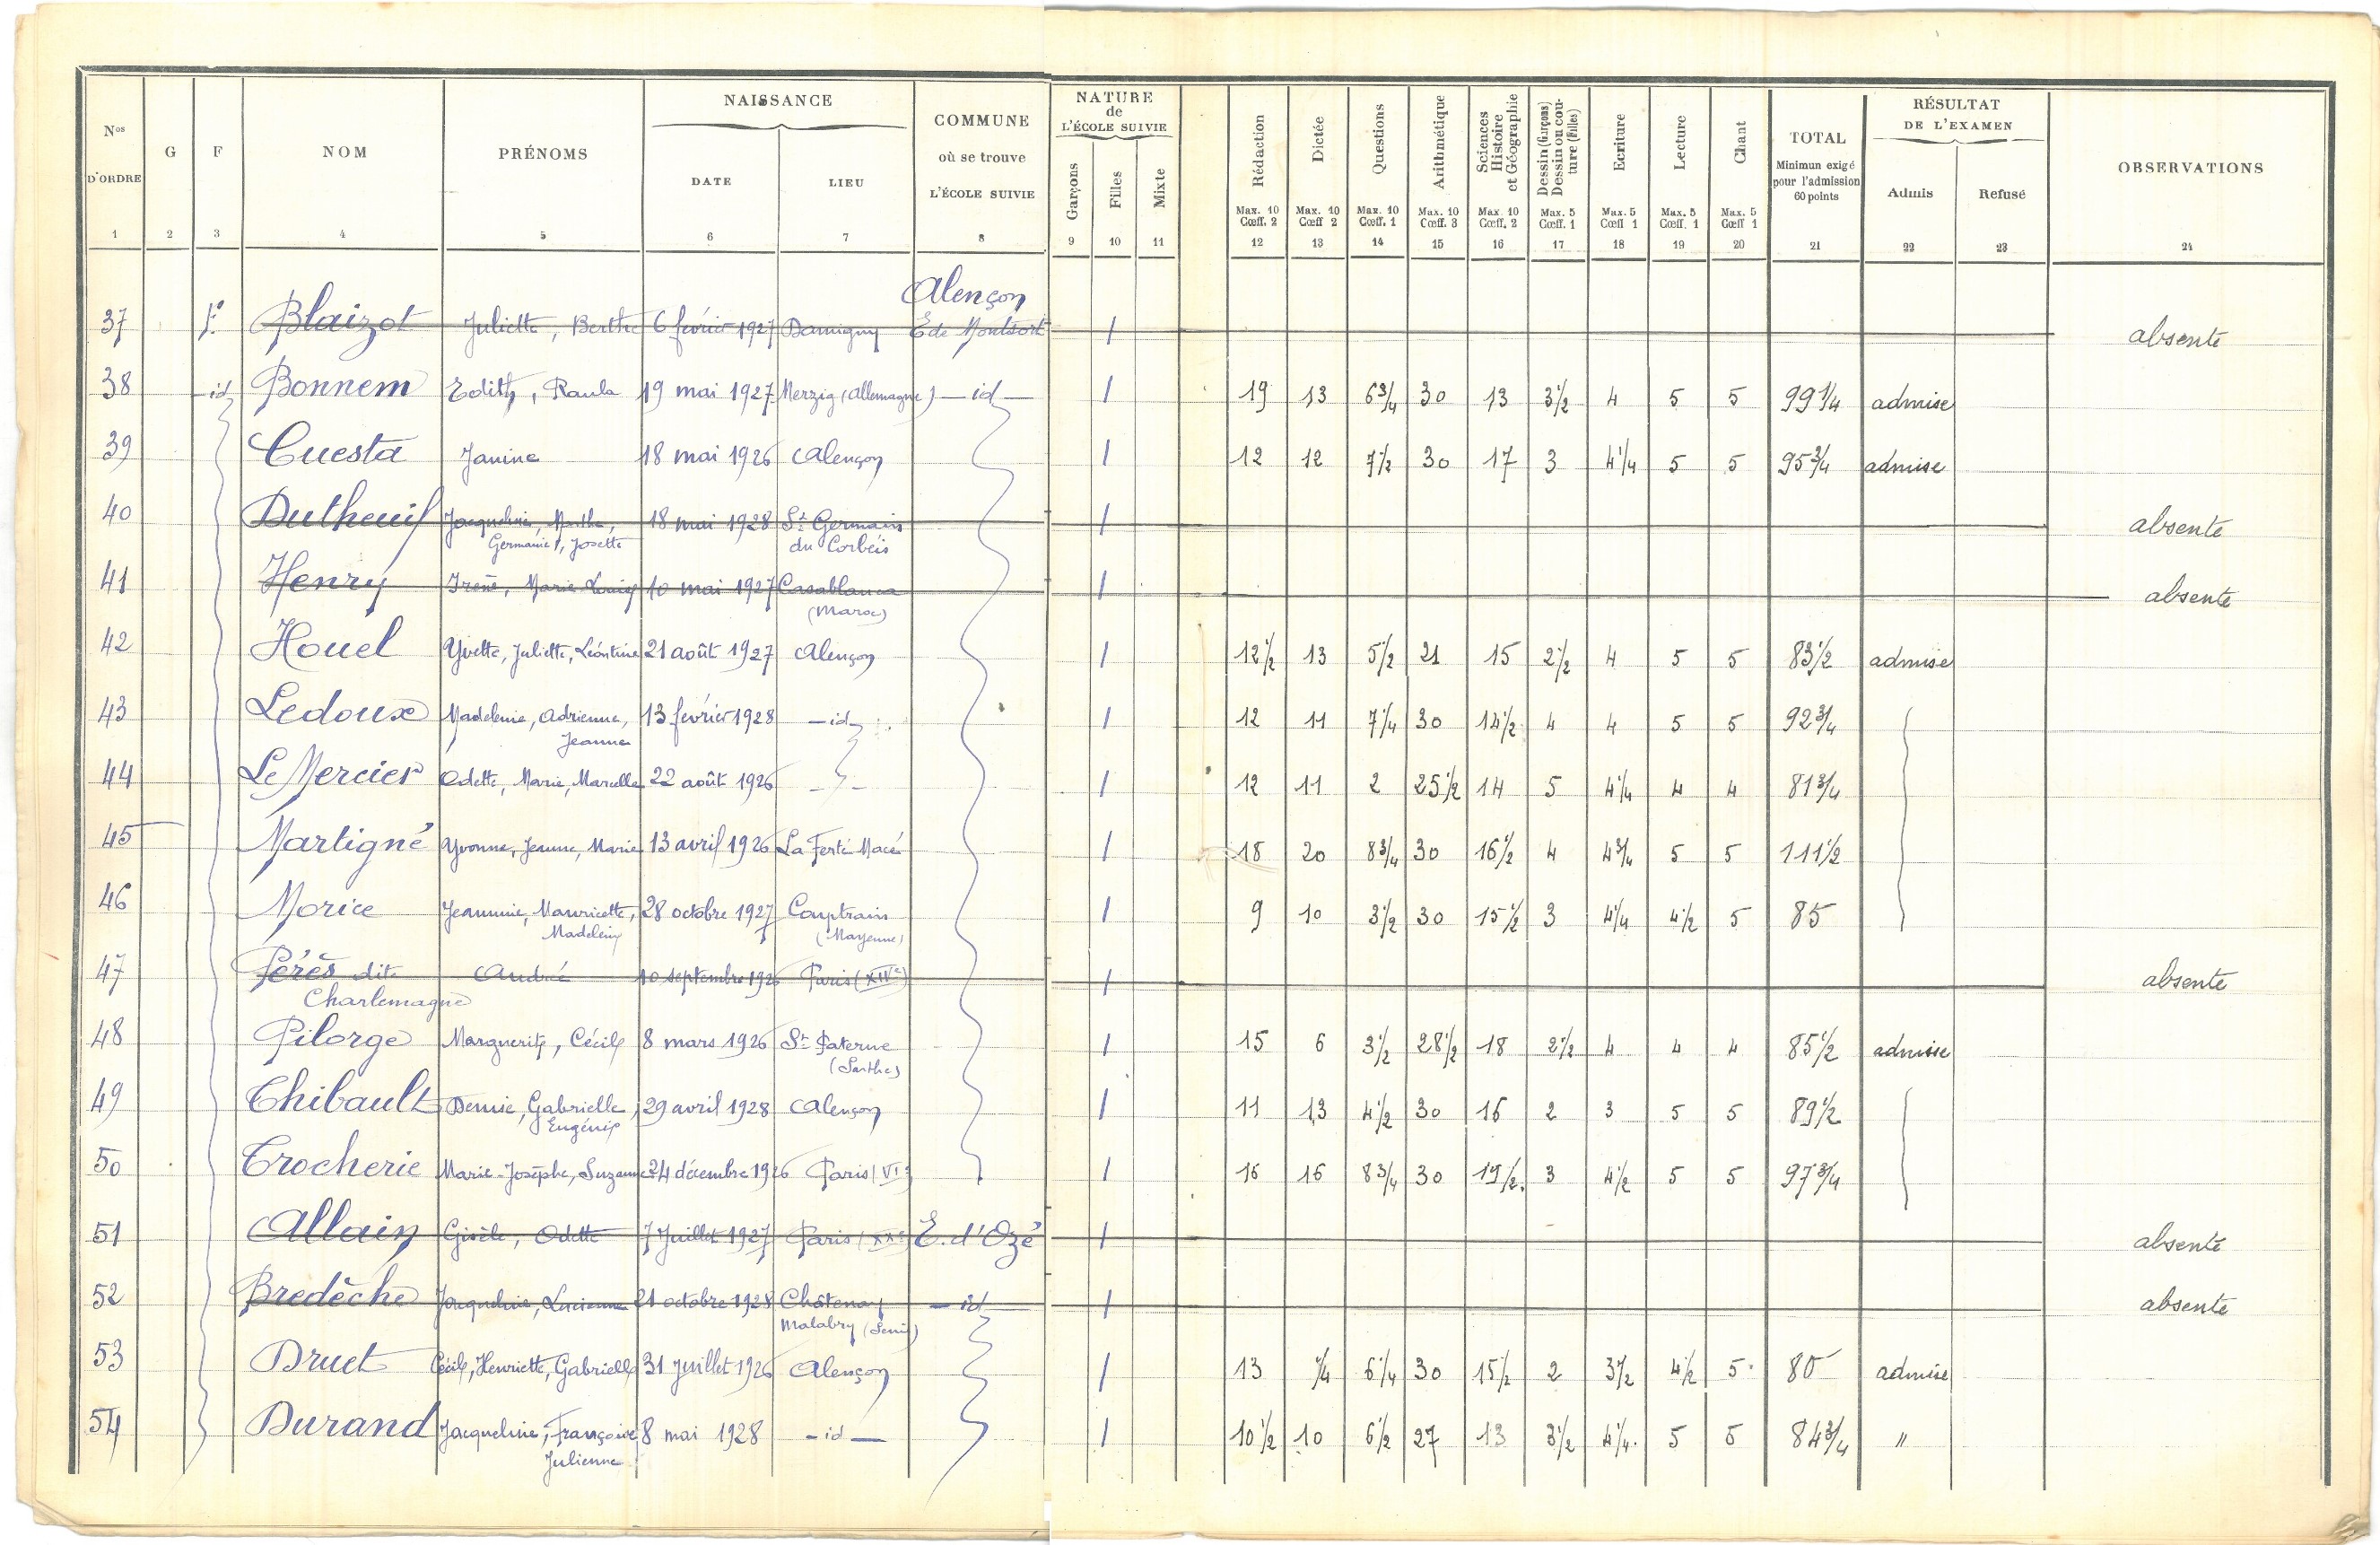 NAISSANCE
NATURE de L'ÉCOLE SUIVIE
RÉSULTAT DE L'EXAMEN
Nos D'ORDRE G F NOM PRÉNOMS DATE LIEU COMMUNE où se trouve L'ÉCOLE SUIVIE Garçons Filles Mixte Rédaction Dictée Questions Arithmétique Sciences Histoire et Géographie Dessin (Garçons) Dessin ou couture (Filles) Ecriture Lecture Chant TOTAL Minimun exigé pour l'admission 60 points Admis Refusé OBSERVATIONS
Max. 10 Cœff. 2 Max. 10 Cœff 2 Max. 10 Cœff. 1 Max. 10 Cœff. 3 Max. 10 Cœff. 2 Max. 5 Cœff. 1 Max. 5 Cœff 1 Max. 5 Cœff. 1 Max. 5 Cœff 1
1 2 3 4 5 6 7 8 9 10 11 12 13 14 15 16 17 18 19 20 21 22 23 24
Alençon
37 F. Blaizot Juliette, Berthe 6 février 1927 Damigny É de Montsort 1 absente
38 id Bonnem Edith, Paula 19 mai 1927 Merzig (Allemagne) - id - 1 19 13 6 3/4 30 13 3 1/2 4 5 5 99 1/4 admise
39 Cuesta Janine 18 mai 1926 Alençon 1 12 12 7 1/2 30 17 3 4 1/4 5 5 95 3/4 admise
40 Dutheuil Jacqueline, Marthe, 18 mai 1928 St Germain 1 absente
Germaine, Josette du Corbéis
41 Henry Irène, Marie Louise 10 mai 1927 Casablanca 1 absente
(Maroc)
42 Houel Yvette, Juliette, Léontine 21 août 1927 Alençon 1 12 1/2 13 5 1/2 21 15 2 1/2 4 5 5 83 1/2 admise
43 Ledoux Madeleine, Adrienne, 13 février 1928 - id - 1 12 11 7 1/4 30 14 1/2 4 4 5 5 92 3/4
Jeanne
44 Le Mercier Odette, Marie, Marcelle 22 août 1926 1 12 11 2 25 1/2 14 5 4 1/4 4 4 81 3/4
45 Martigné Yvonne, Jeanne, Marie 13 avril 1926 La Ferté Macé 1 18 20 8 3/4 30 16 1/2 4 4 3/4 5 5 111 1/2
46 Morice Jeannine, Mauricette, 28 octobre 1927 Couptrain 1 9 10 3 1/2 30 15 1/2 3 4 1/4 4 1/2 5 85
Madeleine (Mayenne)
47 Pérès dite André 10 septembre 1926 Paris (XIVe) 1 absente
Charlemagne
48 Pilorge Marguerite, Cécile 8 mars 1926 St Paterne 1 15 6 3 1/2 28 1/2 18 2 1/2 4 4 4 85 1/2 admise
(Sarthe)
49 Thibault Denise, Gabrielle, 29 avril 1928 Alençon 1 11 13 4 1/2 30 16 2 3 5 5 89 1/2
Eugénie
50 Trocherie Marie-Josèphe, Suzanne 24 décembre 1926 Paris (VIe) 1 16 16 8 3/4 30 19 1/2 3 4 1/2 5 5 97 3/4
51 Allain Gisèle, Odette 7 Juillet 1927 Paris (XXe) E. d'Ozé 1 absente
52 Bredèche Jacqueline, Lucienne 21 octobre 1928 Châtenay - id - 1 absente
Malabry (Seine)
53 Druet Cécile, Henriette, Gabrielle 31 Juillet 1926 Alençon 1 13 1/4 6 1/4 30 15 1/2 2 3 1/2 4 1/2 5 80 admise
54 Durand Jacqueline, Françoise 8 mai 1928 - id - 1 10 1/2 10 6 1/2 27 13 3 1/2 4 1/4 5 5 84 3/4 "
Julienne